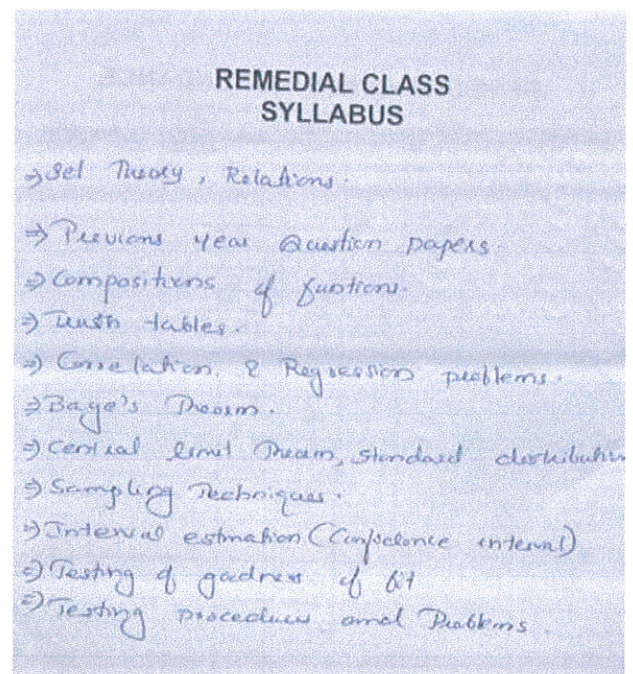 REMEDIAL CLASS
SYLLABUS
⇒ Set Theory, Relations.
⇒ Previons year Question papers.
⇒ Compositions of funtions.
⇒ Truth tables.
⇒ Correlation & Regression problems.
⇒ Baye's Theorm.
⇒ Central limit Theam, standard distribution
⇒ Sampling Techniques.
⇒ Interval estmation (Confidence interval)
⇒ Testing of goodness of fit
⇒ Testing procedures and Problems.